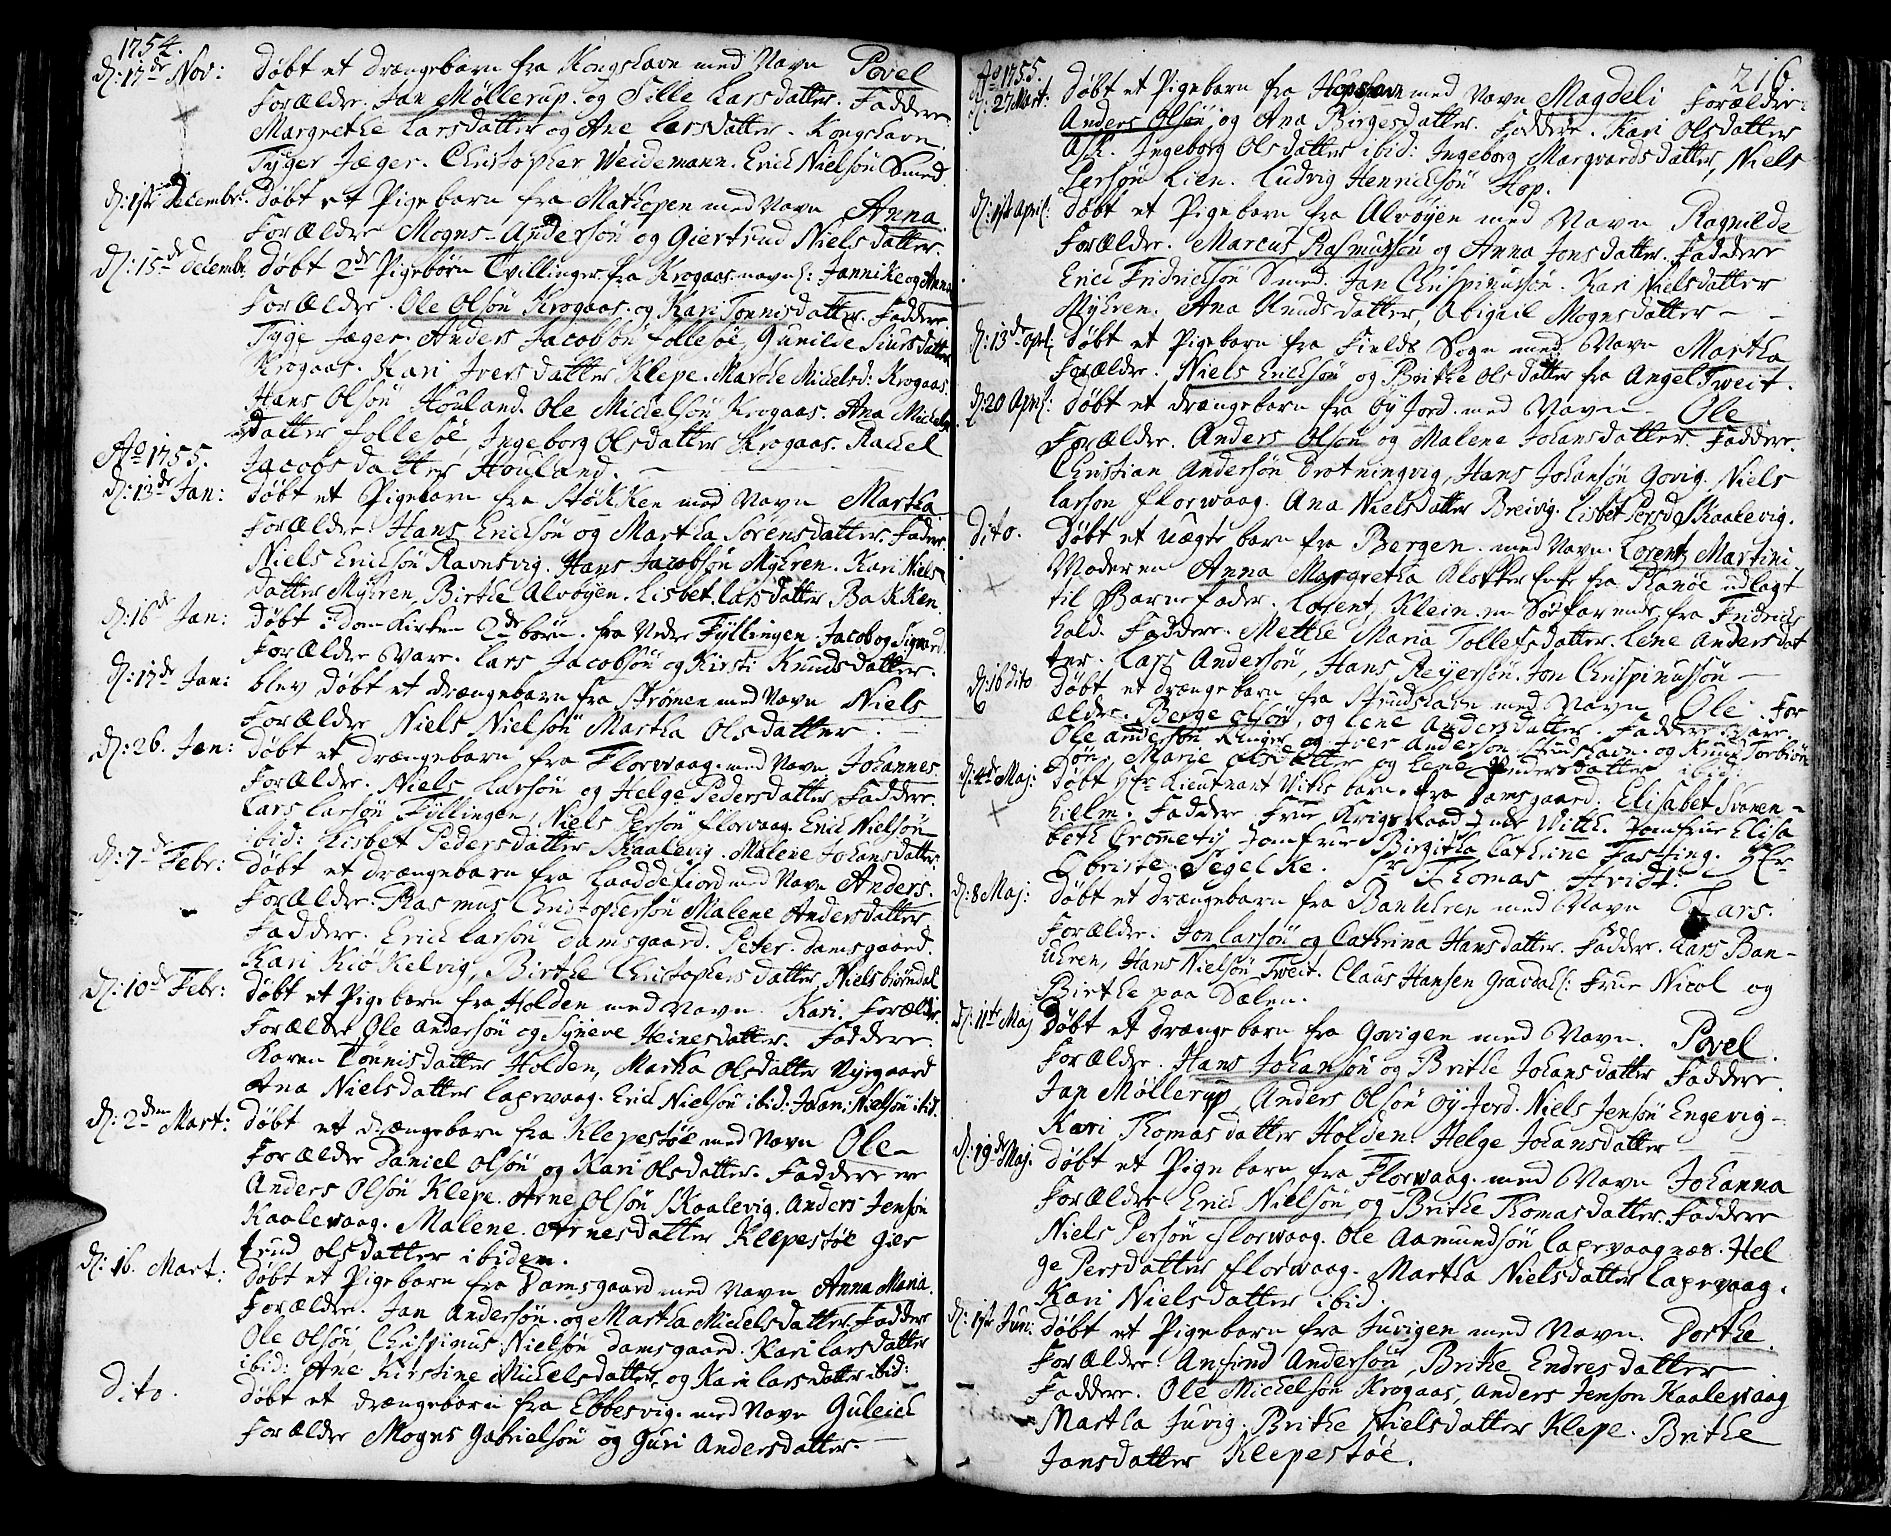 1754.
d: 17de Nov: Døbt et drængebarn fra Kongshavn med Navn Povel
Forældre. Jan Møllerup. og Sille Larsdatter. Faddere.
Margrethe Larsdatter og Ane Larsdatter. Kongshavn.
Tyger Jæger. Christopher Weidemann. Erich Nielsøn Smed.
d: 1ste Decembr: Døbt et Pigebarn fra Mathopen med Navn Anna
Forældre Mogns Andersøn og Giertrud Nielsdatter.
d: 15de Decembr. Døbt 2de Pigebørn Tvillinger fra Krogaas navnl: Jannike og Anna
Forældre. Ole Olsøn Krogaas. og Kari Tønnisdatter. Faddere.
Tyge Jæger. Anders Jacobsøn follesøe, Gunilde Siursdatter
Krogaas. Kari Iversdatter Klepe. Marthe Michelsd: Krogaas.
Hans Olsøn Houland. Ole Michelsøn Krogaas. Ana Michels
datter follesøe, Ingeborg Olsdatter Krogaas. Rachel
Ao 1755. Jacobsdatter Houland.
d: 13de Jan: Døbt et Pigebarn fra Støkken med Navn Martha
Forældre Hans Erichsøn og Martha Sørensdatter. Fadder.
Niels Erichsøn Ravnsvig. Hans Jacobsøn Myhren. Kari Niels
datter Myhren, Birthe Alvøyen. Lisbet Larsdatter Bakken.
d: 16de Jan: Døbt i Dom Kirken 2de børn. fra Nedre Fyllingen. Jacob og Sigvard.
Forældre Vare. Lars Jacobsøn og Kirsti Knudsdatter.
d: 17de Jan: blev døbt et drængebarn fra Strømen med Navn Niels
Forældre Niels Nielsøn Martha Olsdatter.
d: 26. Jan: Døbt et drængebarn fra Florwaag. med Navn Johannes.
Forældre. Niels Larsøn og Helge Pedersdatter Faddere.
Lars Larsøn Fyllingen, Niels Persøn florvaag. Erich Nielsøn
ibid: Lisbet Pedersdatter Skaalevig. Malene Johansdatter.
d: 7de Febr: Døbt et drængebarn fra Laaddefiord med Navn Anders.
Forældre. Rasmus Christophersøn Malene Andersdatter.
Faddere. Erich Larsøn Damsgaard. Peter. Damsgaard.
Kari Kiøkelvig, Birthe Christophersdatter, Niels biørndal
d: 10de Febr: Døbt et Pigebarn fra Holden med Navn Kari. Forældr.
Forældre Ole Andersøn og Syneve Heinesdatter. Faddere.
Karen Tønnisdatter Holden, Martha Olsdatter Nyegaard
Ana Nielsdatter Laprvaag. Erich Nielsøn ibid: Johan: Nielsøn ibid.
d: 2den Mart: Døbt et drængebarn fra Klepestøe med Navn Ole
Forældre Daniel Olsøn og Kari Olsdatter. Faddere er
Anders Olsøn Klepe. Arne Olsøn Skaalevig. Anders Jensøn
Kaalewaag. Malene. Arnesdatter Klepestøe gier
trud olsdatter ibidem.
d: 16. Mart: Døbt et Pigebarn fra Damsgaard med Navn Anna Maria.
Forældre. Jan Andersøn. og Martha Michelsdatter Fadder
Ole Olsøn, Chrispinus Nielsøn Damsgaard. Kari Larsdatter
ibid: Ane Kirstine Nichelsdatter, og Kari Larsdatter ibid:
Dito. Døbt et drængebarn fra Ebbesvig. med Navn Guleich
Forældre Mogns Gabrielsøn og Guri Andersdatter.
216
Ao 1755.
d: 27 Mart: Døbt et Pigebarn fra Hopshavn med Navn Magdeli Forældre:
Anders Olsøn og Ana Birgesdatter. Faddere. Kari Olsdatter
Ask. Ingeborg Olsdatter ibid: Ingeborg Marqvardsdatter, Niels
Persøn Lien. Ludvig Henrichsøn Hop.
d: 1ste April: Døbt et Pigebarn fra Alvøyen med Navn Ragnilde
Forældre. Marcus Rasmussøn og Anna Jonsdatter. Faddere
Erich Fridrichsøn Smed. Jan Chrispinussøn. Kari Nielsdatter
Myhren. Ana Knudsdatter, Abigail Mognsdatter
d: 13de April Døbt et Pigebarn fra Fields Sogn med Navn Martha
Forældre. Niels Erichsøn og Brithe Olsdatter fra Angeltweit.
d: 20 April: Døbt et drængebarn fra Øyjord med Navn Ole
Forældre. Anders Olsøn og Malene Johansdatter. Faddere.
Christian Andersøn Drotningvig, Hans Johansøn Govig. Niels
Larsøn florwaag. Ana Nielsdatter Breivig. Lisbet Persd Skaalevig.
Dito. Døbt et uægte barn fra Bergen. med Navn. Lorentz Martini
Moderen Anna Margretha fra Ranøe udlagt
til Barnefader. Lorentz Klein. en Søefarende fra Fridrichs
hald. Faddere. Mette Maria Tollefsdatter. Lene Andersdat
ter. Lars Andersøn, Hans Reyersøn. Jon Chrispinussøn
d: 16 dito Døbt et drængebarn fra Strudshavn med Navn Ole. For
ældre. Berge Olsøn, og Lene Andersdatter. Faddere Vare.
Ole andersøn og Iver Andersøn Strudshavn. og Knud Torbiørn
søn Marie olsdatter og Lene Andersdatter ibid:
d: 4de Maj: Døbt Hr Lieutnant Witks barn. fra Damsgaard. Elisabet Svanen-
hielm. Faddere Frue Krigsraad Inde Witth. Jomfrue Elisa
beth Crometij Jomfrue Birgitha Cathrine Fasting. Hr
Christe Segelke. Sr Thomas Hvidt.
d: 8 Maj: Døbt et drængebarn fra Banuhren med Navn Lars.
Forældre. Jon Larsøn og Cathrina Hansdatter. Fadder. Lars Ban-
uhren, Hans Nielsøn Tweit. Claus Hansen Gravdal: Frue Nicol og
Birthe paa Dælen.
d: 11te Maj Døbt et drængebarn fra Govigen med Navn. Povel.
Forældre. Hans Johansøn og Brithe Johansdatter Faddere.
Jan Møllerup, Anders Olsøn Øyjord. Niels Jensøn Engevig
Kari Thomasdatter Holden. Helge Johansdatter
d: 19de Maj. Døbt et Pigebarn fra Florwaag. med Navn Johanna
Forældre Erich Nielsøn, og Brithe Thomasdatter. Faddere
Niels Persøn florwaag. Ole Aamundsøn Laprvaagnæs. Hel
ge Persdatter florwaag. Martha Nielsdatter Laprvaag.
Kari Nielsdatter ibid.
d: 1ste Jun: Døbt et Pigebarn fra Juvigen med Navn. Dorthe.
Forældre. Ansfind Andersøn, Brithe Endresdatter
Faddere. Ole Michelsøn Krogaas, Anders Jensøn Kaalewaag
Martha Juvig. Brithe Nielsdatter Klepe. Brithe
Jansdatter Klepestøe.